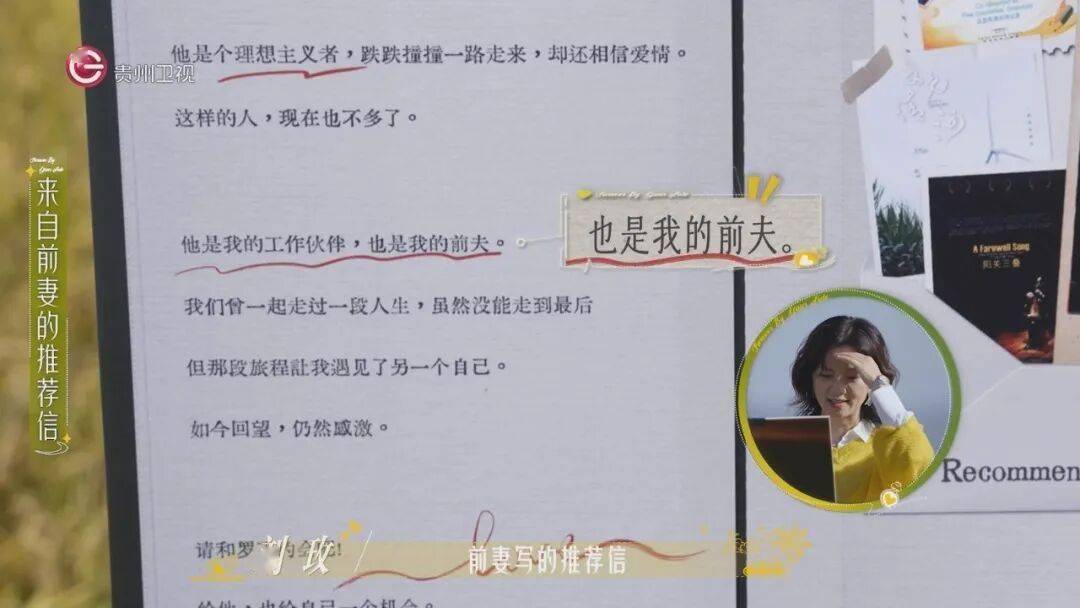 他是个理想主义者，跌跌撞撞一路走来，却还相信爱情。
贵州卫视
这样的人，现在也不多了。
来自前妻的推荐信
他是我的工作伙伴，也是我的前夫。
也是我的前夫。
我们曾一起走过一段人生，虽然没能走到最后
但那段旅程让我遇见了另一个自己。
如今回望，仍然感激。
A Farewell Song
阳关三叠
Recommen
请和罗
刘玫
前妻写的推荐信
给他，也给自己一个机会。